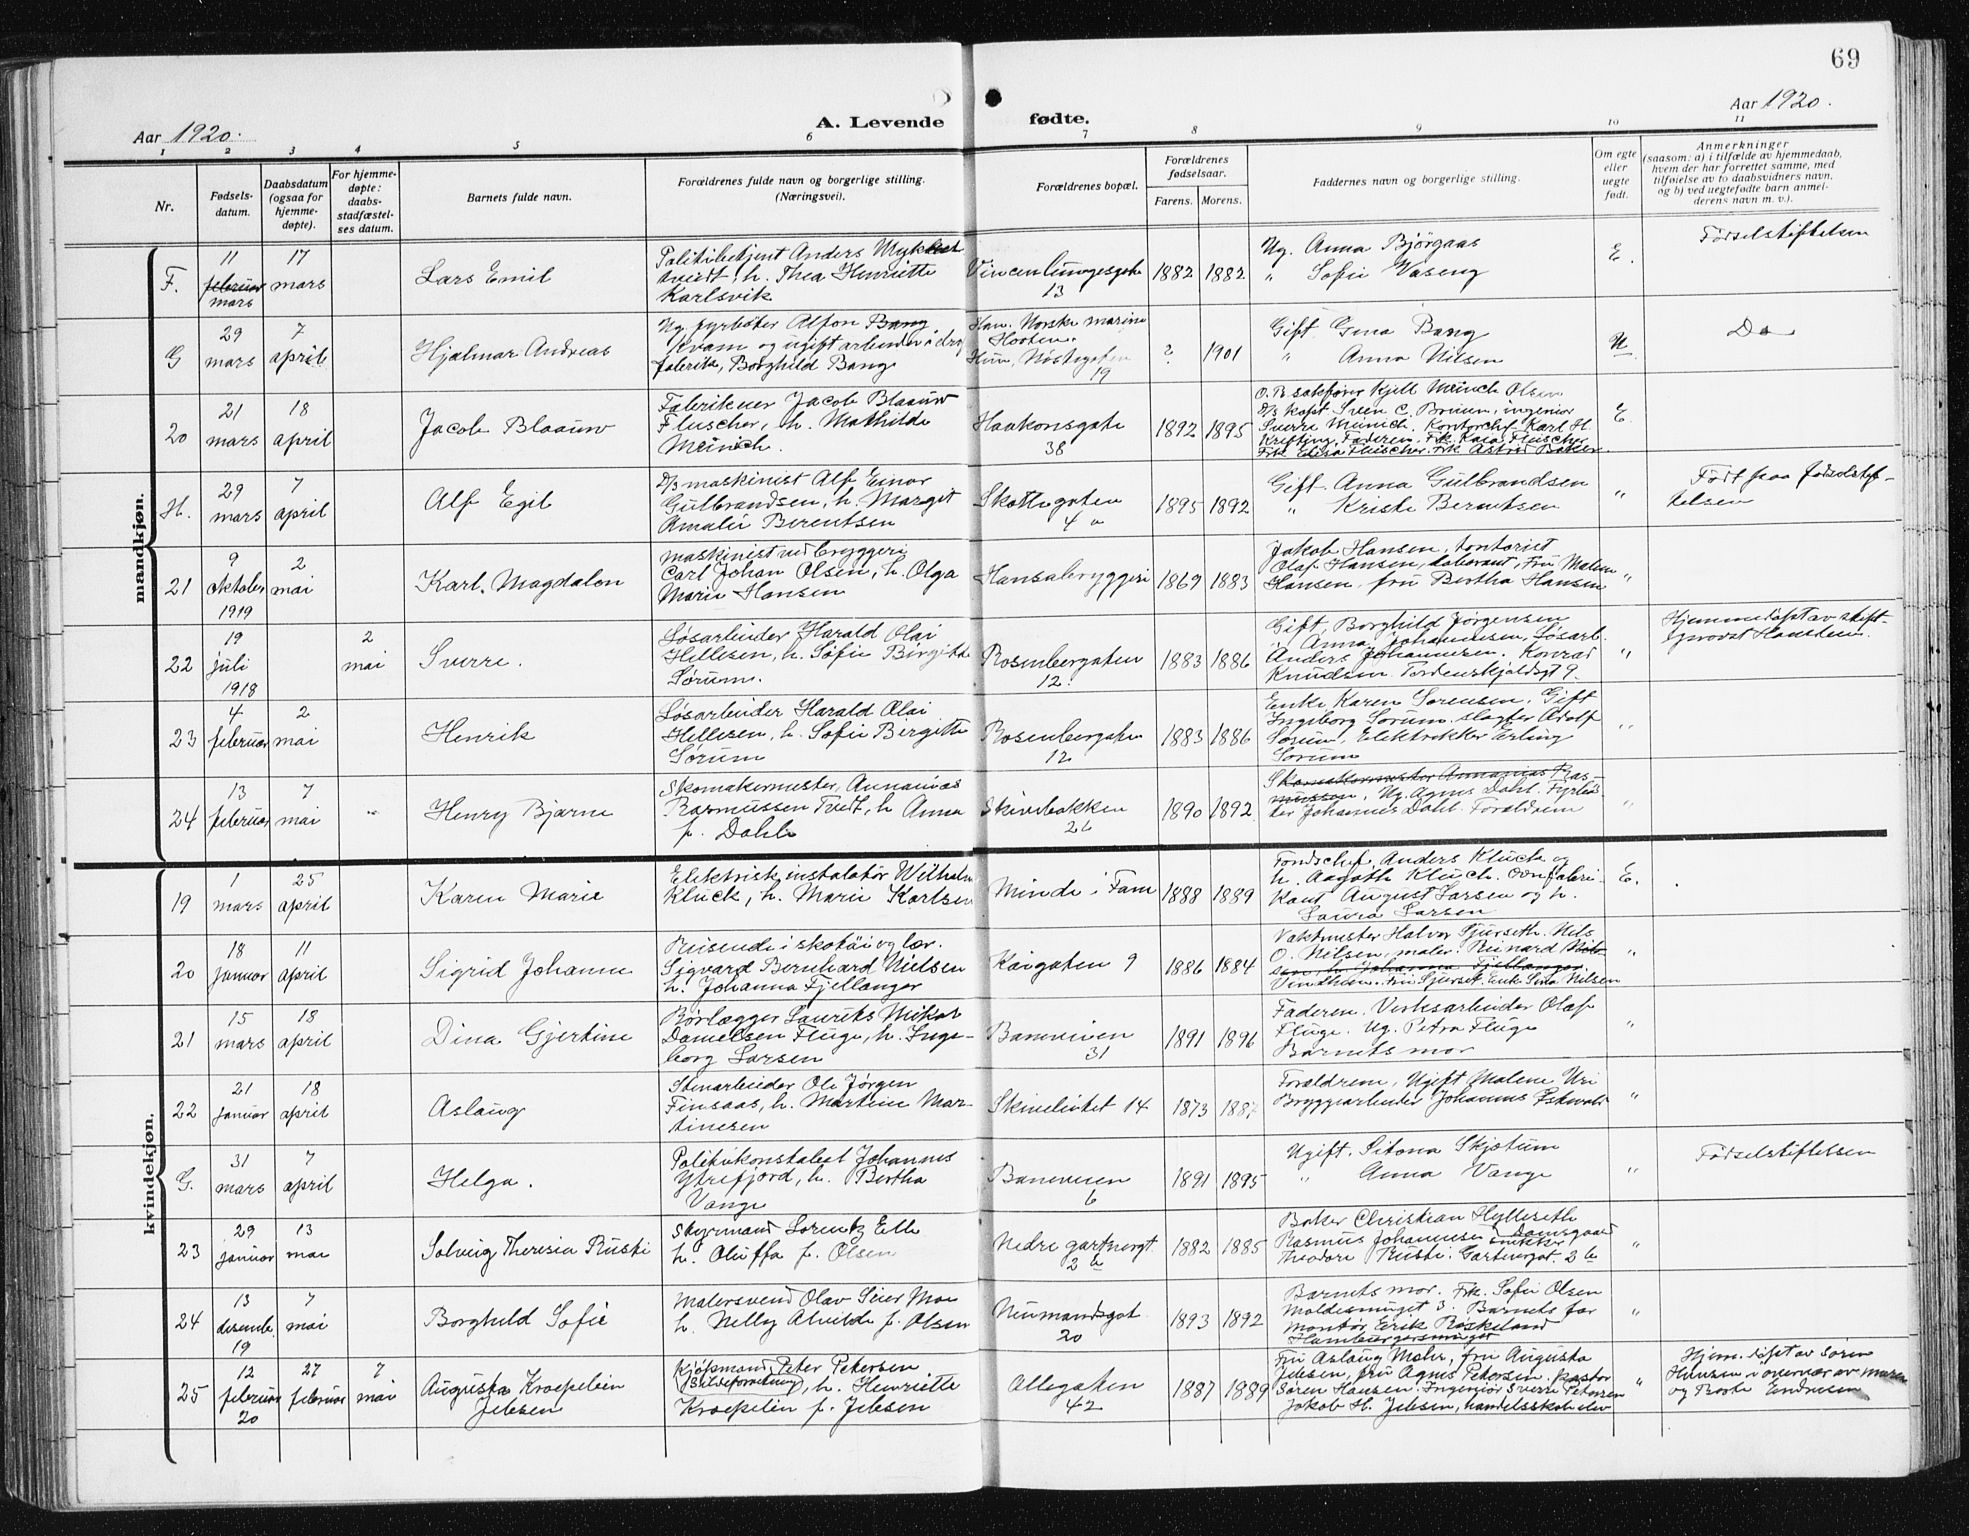 69
Aar 1920.
A. Levende
fødte.
Aar 1920.
1 2 3 4 5 6 7 8 9 10 11
Nr.
Fødsels-
datum.
Daabsdatum
(ogsaa for
hjemme-
døpte).
For hjemme-
døpte:
daabs-
stadfæstel-
ses datum.
Barnets fulde navn.
Forældrenes fulde navn og borgerlige stilling.
(Næringsvei).
Forældrenes bopæl.
Forældrenes
fødselsaar.
Farens. Morens.
Faddernes navn og borgerlige stilling.
Om egte
eller
uegte
født.
Anmerkninger
(saasom: a) i tilfælde av hjemmedaab,
hvem der har forrettet samme, med
tilføielse av to daabsvidners navn,
og b) ved uegtefødte barn anmel-
derens navn m. v.).
mandkjøn.
F.
11
februar
mars
17
mars
Lars Emil
Politibetjent Anders
h. Thea Henriette
Karlsvik
13
1882 1882
Ug. Anna Bjørgaas
" Sofie Vaseng
E.
Fødselstiftelsen
G
29
mars
7
april
Hjalmar Andreas
Ug. fyrbøter Alfon Bang
Kvam og ugift arbeider i
fabrik, Borghild Bang
Han. Norske marine
Hun, Nøstegaten
19
? 1901
Gift Gina Bang
" Anna Nilsen
U
Do
20
21
mars
18
april
Jacob Blaauw
Fabrikeier Jacob Blaauw
Fleischer, h. Mathilde
Meinich.
Haakonsgate
38
1892 1895
Kjell Meinich Olsen
D/S kapt. Sven C. Bruun, ingeniør
Sverre Meinich. Kontorchef Karl H.
Faderen. Frk. Kaia Fleischer
Frk. Elisa Fleischer. Frk. Astrid
E.
H.
29
mars
7
april
Alf Egil
D/S maskinist Alf Einar
Gulbrandsen, h. Margit
Amalie Berentsen
Skottegaten
4 a
1895 1892
Gift. Anna Gulbrandsen
" Kriste Berentsen
"
Født paa fødselstif-
telsen
21
9
oktober
1919
2
mai
Karl. Magdalon
Maskinist ved bryggeri
Carl Johan Olsen, h. Olga
Marie Hansen
Hansabryggeri
1869 1883
Jakob Hansen, kontorist
Olaf Hansen, laborant, Fru Malene
Hansen, fru Bertha Hansen
"
22
19
juli
1918
2
mai
Sverre.
Løsarbeider Harald Olai
Hellesen, h. Sofie Birgitte
Sørum.
Rosenbergaten
12.
1883 1886
Gift. Borghild Jørgensen
" Anna Johannesen, Løsarb.
Anders Johannesen. Konrad
Knudsen. Tordenskjoldsgt 9.
"
Hjemmedøpt av stift-
provst Hansteen.
23
4
februar
2
mai
Henrik
Løsarbeider Harald Olai
Hellesen, h. Sofie Bergitte
Sørum
Rosenbergaten
12
1883 1886
Enke Karen Sørensen. Gift
Ingeborg Sørum. slagter Adolf
Sørum, Elektrikker Erling
Sørum
"
24
13
februar
7
mai
"
Henry Bjarne
Skomakermester Annanias
Rasmussen Tvedt, h. Anna
f. Dahle
Skivebakken
26
1890 1892
Skomakermester Annanias Ras-
mussen, Ug. Agnes Dahl. Fyrbø-
ter Johannes Dahl. Forældrene
"
kvindekjøn.
19
1
mars
25
april
Karen Marie
Elektriskinstalatør Wilhelm
Kluck, h. Marie Karlsen
Minde i Fana
1888 1889
Anders Kluck og
h. Aagoth Kluck. Ovnfabri-
kant August Larsen og h.
Laura Larsen
E.
20
18
januar
11
april
Sigrid Johanne
Reisende i skotøi og lær.
Sigvard Bernhard Nielsen
h. Johanna Fjellanger
Kaigaten 9
1886 1884
Vaktmester Halvor Sjurseth. Nils
O. Nilsen, maler. Reinard Niel-
sen, h. Johanna Fjellanger
Fru Sjurset. Enke Nilsen
"
21
15
mars
18
april
Dina Gjertine
Rørlægger Laurits Mikal
Danielsen Fluge, h. Inge-
borg Larsen
Baneveien
31
1891 1896
Faderen. Verksarbeider Olaf
Fluge. Ug. Petra Fluge
Barnets mor
"
22
21
januar
18
april
Aslaug
Stenarbeider Ole Jørgen
Finsaas, h. Martine Mar-
tinesen
14
1873 1887
Forældrene, Ugift Malene Uri
Bryggearbeider Johannes
"
G.
31
mars
7
april
Helga.
Politikonstabel Johannes
Ytrefjord, h. Bertha
Vange
Baneveien
6
1891 1895
Ugift. Sitona Skjøtum
" Anna Vange
"
Fødselstiftelsen
23
29
januar
13
mai
Solveig Theresia Rusti
Styrmand Lorentz Elle
h. Oluffa f. Olsen
Nedre gartnergt.
2 b
1882 1885
Baker Christian Hylleseth
Rasmus Johannesen
snekker
Theodore Rusti. Gartnergt. 2 b
"
24
13
desembr
19
7
mai
Borghild Sofie
Malersvend Olav Seier Moe
h. Nelly Alvilde f. Olsen
Neumandsgat
20
1893 1892
Barnets mor. Frk. Sofie Olsen
3. Barnets far
Montør Erik Røskeland
Hamburgersmuget
"
25
12
februar
20
27
februar
7
mai
Augusta Kroepelein
Jebsen
Kjøpmand, Peter Petersen
h. Henriette
Kroepelin f. Jebsen
Allegaten
42
1887 1889
Fru Aslaug Mohr, fru Augusta
Jebsen, fru Agnes Petersen. pastor
Søren Hansen. Ingeniør Sverre Petersen
Jakob H. Jebsen, handelsskole elev
"
Hjem. døpt av Søren
Hansen i overvær av
og Borte Endresen